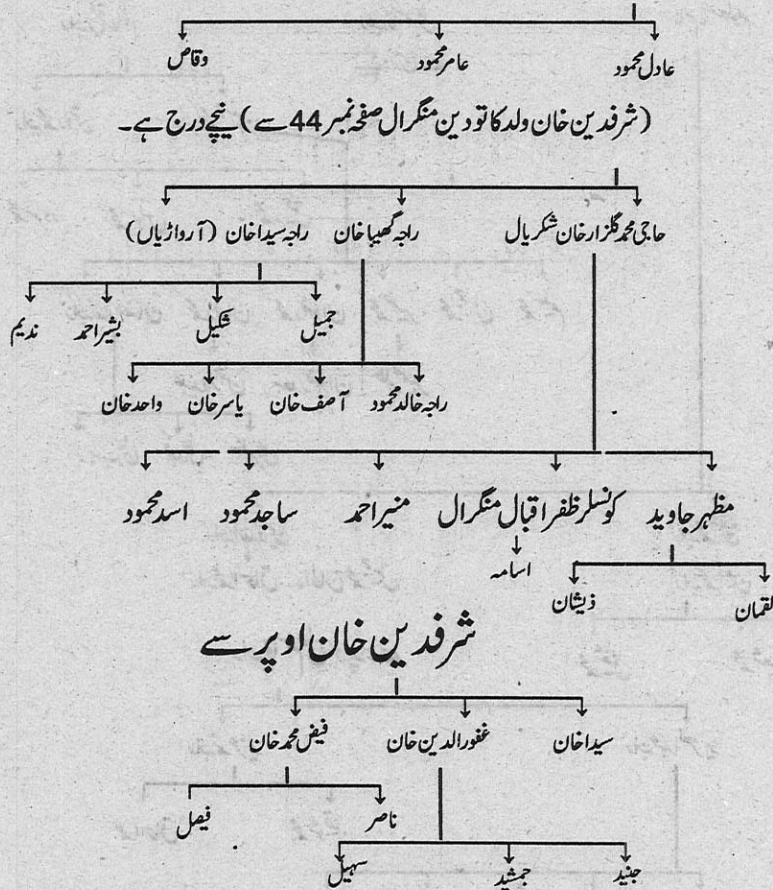 عادل محمود عامر محمود وقاص
(شرفدین خان ولد کاتو دین منگرال صفحہ نمبر 44 سے) نیچے درج ہے۔
حاجی محمد گلزار خان شکریال راجہ گھیبا خان راجہ سیدا خان (آرواڑیاں)
جمیل شکیل بشیر احمد ندیم
راجہ خالد محمود آصف خان یاسر خان واحد خان
مظہر جاوید کونسلر ظفر اقبال منگرال منیر احمد ساجد محمود اسد محمود
اسامہ
لقمان ذیشان
شرفدین خان اوپر سے
سیدا خان غفور الدین خان فیض محمد خان
ناصر فیصل
جنید جمشید سہیل